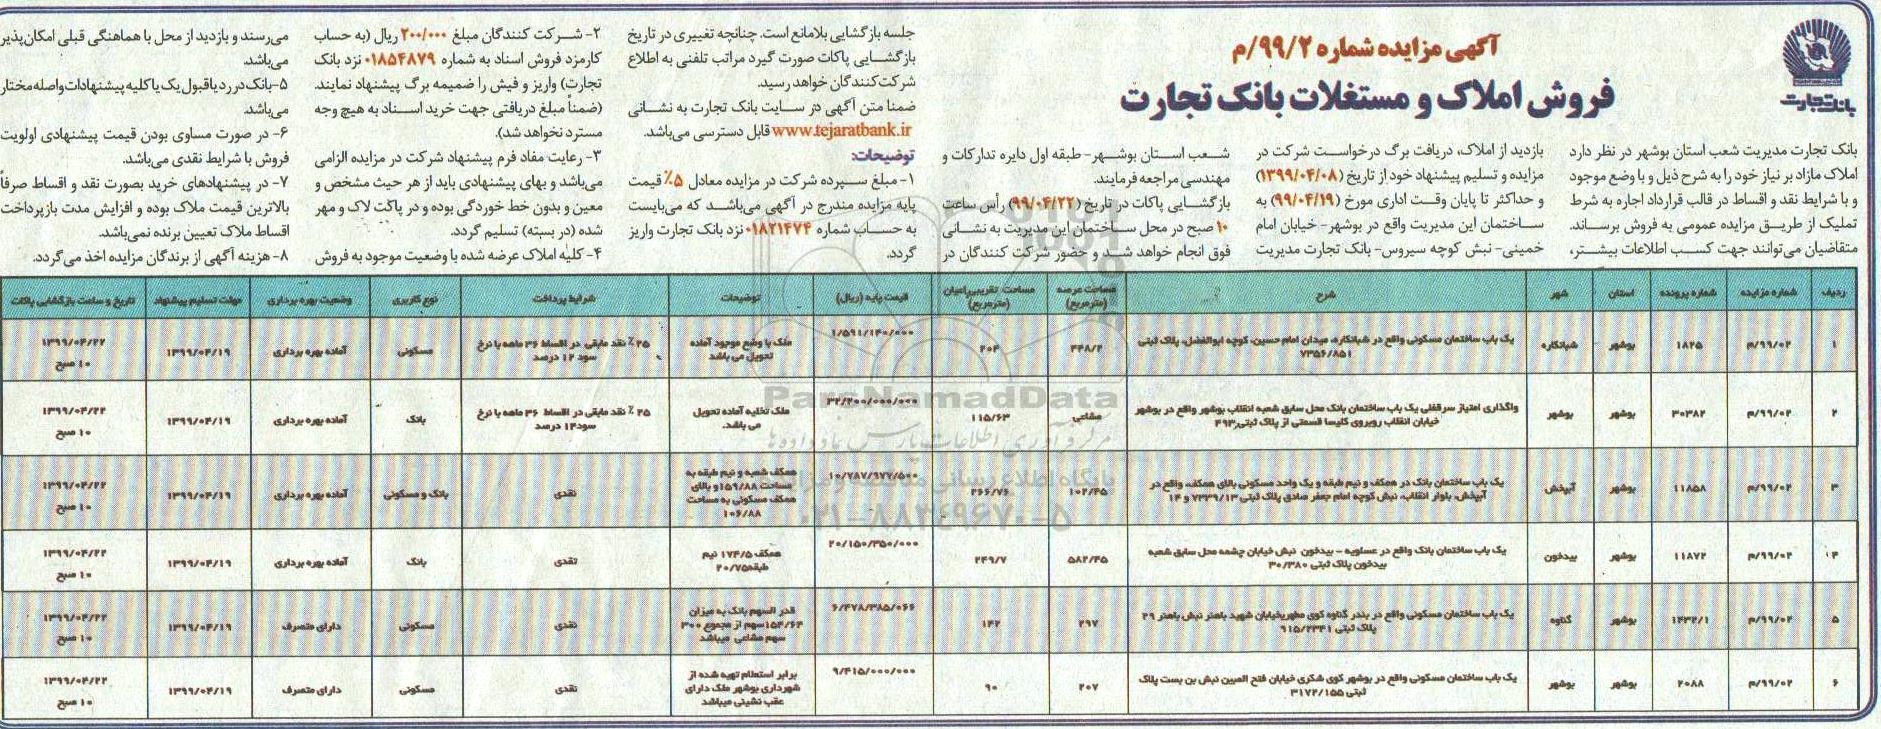 بانک تجارت
آگهی مزایده شماره ۹۹/۲/م
فروش املاک و مستغلات بانک تجارت
بانک تجارت مدیریت شعب استان بوشهر در نظر دارد
املاک مازاد بر نیاز خود را به شرح ذیل و با وضع موجود
و با شرایط نقد و اقساط در قالب قرارداد اجاره به شرط
تملیک از طریق مزایده عمومی به فروش برساند.
متقاضیان می‌توانند جهت کسب اطلاعات بیشتر،
بازدید از املاک، دریافت برگ درخواست شرکت در
مزایده و تسلیم پیشنهاد خود از تاریخ (۱۳۹۹/۰۴/۰۸)
و حداکثر تا پایان وقت اداری مورخ (۹۹/۰۴/۱۹) به
ساختمان این مدیریت واقع در بوشهر- خیابان امام
خمینی- نبش کوچه سیروس- بانک تجارت مدیریت
شعب استان بوشهر- طبقه اول دایره تدارکات و
مهندسی مراجعه فرمایند.
بازگشایی پاکات در تاریخ (۹۹/۰۴/۲۲) رأس ساعت
۱۰ صبح در محل ساختمان این مدیریت به نشانی
فوق انجام خواهد شد و حضور شرکت کنندگان در
جلسه بازگشایی بلامانع است. چنانچه تغییری در تاریخ
بازگشایی پاکات صورت گیرد مراتب تلفنی به اطلاع
شرکت‌کنندگان خواهد رسید.
ضمنا متن آگهی در سایت بانک تجارت به نشانی
www.tejaratbank.ir قابل دسترسی می‌باشد.
توضیحات:
۱- مبلغ سپرده شرکت در مزایده معادل ۵٪ قیمت
پایه مزایده مندرج در آگهی می‌باشد که می‌بایست
به حساب شماره ۰۱۸۲۱۴۷۴ نزد بانک تجارت واریز
گردد.
۲- شرکت کنندگان مبلغ ۲۰۰/۰۰۰ ریال (به حساب
کارمزد فروش اسناد به شماره ۰۱۸۵۴۸۷۹ نزد بانک
تجارت) واریز و فیش را ضمیمه برگ پیشنهاد نمایند.
(ضمناً مبلغ دریافتی جهت خرید اسناد به هیچ وجه
مسترد نخواهد شد).
۳- رعایت مفاد فرم پیشنهاد شرکت در مزایده الزامی
می‌باشد و بهای پیشنهادی باید از هر حیث مشخص و
معین و بدون خط خوردگی بوده و در پاکت لاک و مهر
شده (در بسته) تسلیم گردد.
۴- کلیه املاک عرضه شده با وضعیت موجود به فروش
می‌رسند و بازدید از محل با هماهنگی قبلی امکان‌پذیر
می‌باشد.
۵- بانک در رد یا قبول یک یا کلیه پیشنهادات واصله مختار
می‌باشد.
۶- در صورت مساوی بودن قیمت پیشنهادی اولویت
فروش با شرایط نقدی می‌باشد.
۷- در پیشنهادهای خرید بصورت نقد و اقساط صرفاً
بالاترین قیمت ملاک بوده و افزایش مدت بازپرداخت
اقساط ملاک تعیین برنده نمی‌باشد.
۸- هزینه آگهی از برندگان مزایده اخذ می‌گردد.
ردیف شماره مزایده شماره پرونده استان شهر شرح مساحت عرصه (مترمربع) مساحت تقریبی اعیان (مترمربع) قیمت پایه (ریال) توضیحات شرایط پرداخت نوع کاربری وضعیت بهره برداری مهلت تسلیم پیشنهاد تاریخ و ساعت بازگشایی پاکات
۱ ۹۹/۰۲/م ۱۸۲۵ بوشهر شبانکاره یک باب ساختمان مسکونی واقع در شبانکاره، میدان امام حسین، کوچه ابوالفضل، پلاک ثبتی ۷۳۵۶/۸۵۱ ۴۴۸/۲ ۲۰۴ ۱/۵۹۱/۱۴۰/۰۰۰ ملک با وضع موجود آماده تحویل می باشد ۲۵ ٪ نقد مابقی در اقساط ۳۶ ماهه با نرخ سود ۱۲ درصد مسکونی آماده بهره برداری ۱۳۹۹/۰۴/۱۹ ۱۳۹۹/۰۴/۲۲ ۱۰ صبح
۲ ۹۹/۰۲/م ۳۰۳۸۲ بوشهر بوشهر واگذاری امتیاز سرقفلی یک باب ساختمان بانک محل سابق شعبه انقلاب بوشهر واقع در بوشهر خیابان انقلاب روبروی کلیسا قسمتی از پلاک ثبتی ۴۹۳ مشاعی ۱۱۵/۶۳ ۳۲/۲۰۰/۰۰۰/۰۰۰ ملک تخلیه آماده تحویل می باشد. ۲۵ ٪ نقد مابقی در اقساط ۳۶ ماهه با نرخ سود ۱۲ درصد بانک آماده بهره برداری ۱۳۹۹/۰۴/۱۹ ۱۳۹۹/۰۴/۲۲ ۱۰ صبح
۳ ۹۹/۰۲/م ۱۱۸۵۸ بوشهر آبپخش یک باب ساختمان بانک در همکف و نیم طبقه و یک واحد مسکونی بالای همکف، واقع در آبپخش، بلوار انقلاب، نبش کوچه امام جعفر صادق پلاک ثبتی ۷۳۳۹/۱۳ و ۱۴ ۱۰۲/۴۵ ۲۶۶/۷۶ ۱۰/۷۸۷/۹۷۷/۵۰۰ همکف شعبه و نیم طبقه به مساحت ۱۵۹/۸۸ و بالای همکف مسکونی به مساحت ۱۰۶/۸۸ نقدی بانک و مسکونی آماده بهره برداری ۱۳۹۹/۰۴/۱۹ ۱۳۹۹/۰۴/۲۲ ۱۰ صبح
۴ ۹۹/۰۲/م ۱۱۸۷۲ بوشهر بیدخون یک باب ساختمان بانک واقع در عسلویه - بیدخون نبش خیابان چشمه محل سابق شعبه بیدخون پلاک ثبتی ۳۰/۳۸۰ ۵۸۲/۴۵ ۲۴۹/۷ ۲۰/۱۵۰/۳۵۰/۰۰۰ همکف ۱۷۴/۵ نیم طبقه ۲۰/۷۵ نقدی بانک آماده بهره برداری ۱۳۹۹/۰۴/۱۹ ۱۳۹۹/۰۴/۲۲ ۱۰ صبح
۵ ۹۹/۰۲/م ۱۴۳۲/۱ بوشهر گناوه یک باب ساختمان مسکونی واقع در بندر گناوه کوی مطهری خیابان شهید باهنر نبش باهنر ۲۹ پلاک ثبتی ۹۱۵/۲۳۴۱ ۲۹۷ ۱۴۲ ۶/۴۷۸/۳۸۵/۰۶۶ قدر السهم بانک به میزان ۱۵۴/۶۴ سهم از مجموع ۳۰۰ سهم مشاعی میباشد نقدی مسکونی دارای متصرف ۱۳۹۹/۰۴/۱۹ ۱۳۹۹/۰۴/۲۲ ۱۰ صبح
۶ ۹۹/۰۲/م ۲۰۸۸ بوشهر بوشهر یک باب ساختمان مسکونی واقع در بوشهر کوی شکری خیابان فتح المبین نبش بن بست پلاک ثبتی ۳۱۷۲/۱۵۵ ۲۰۷ ۹۰ ۹/۴۱۵/۰۰۰/۰۰۰ برابر استعلام تهیه شده از شهرداری بوشهر ملک دارای عقب نشینی میباشد نقدی مسکونی دارای متصرف ۱۳۹۹/۰۴/۱۹ ۱۳۹۹/۰۴/۲۲ ۱۰ صبح
ParsNamadData
مرکز فرآوری اطلاعات پارس نماد داده‌ها
۰۲۱-۸۸۳۴۹۶۷۰-۵